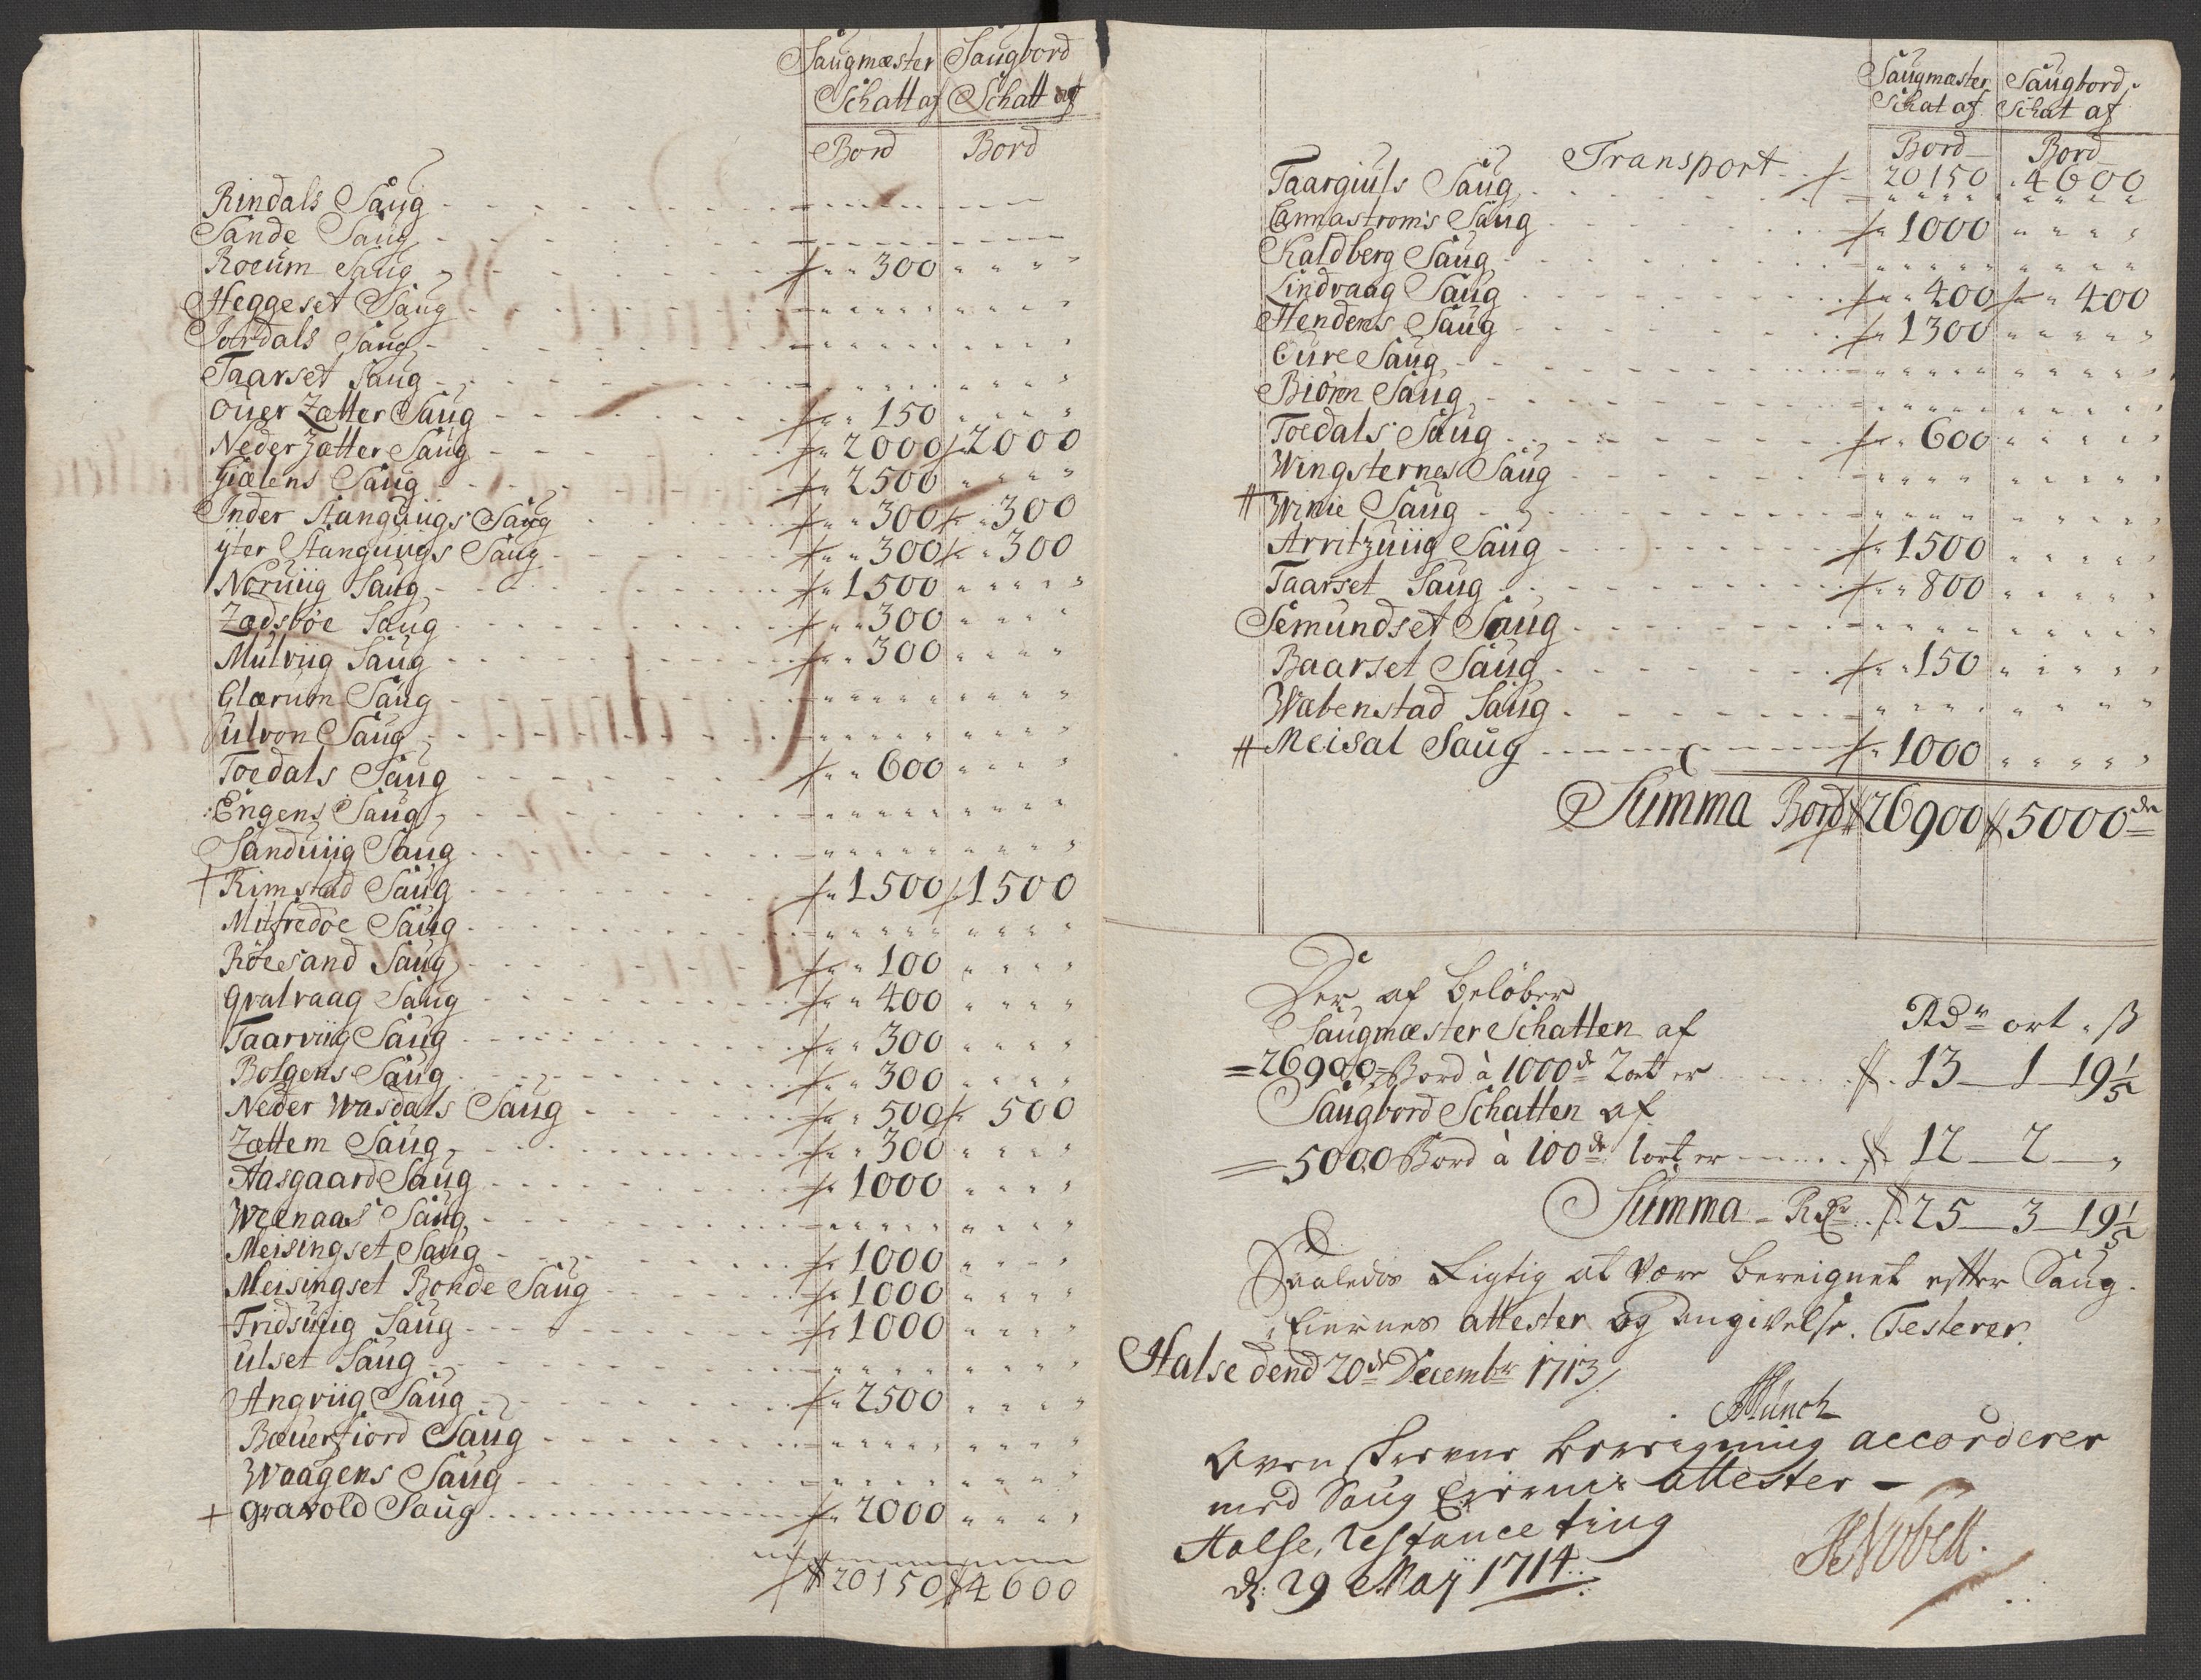 Saugmæster Saugbord
Schatt af Schatt af
Bord Bord
Rindals Saug
Sande Saug
Roeum Saug 300
Heggeset Saug
Sordals Saug
Taarset Saug
Ouer Zætter Saug 150
Neder Zætter Saug 2000 2000
Giælens Saug 2500
Inder Stanguiigs Saug 300 300
Yter Stanguiigs Saug 300 300
Noruiig Saug 1500
Zædsbøe Saug 300
Mulviig Saug 300
Glærum Saug
Fulvon Saug
Toedals Saug 600
Engens Saug
Sanduiig Saug
+ Rimstad Saug 1500 1500
Mitfredøe Saug
Røeesand Saug 100
Qvalvaag Saug 400
Taarviig Saug 300
Bolgens Saug 300
Neder Wasdals Saug 500 500
Zættem Saug 300
Aasgaard Saug 1000
Weenaas Saug
Meisingset Saug 1000
Meisingset Bonde Saug 1000
Fridsuiig Saug 1000
Ulset Saug
Angviig Saug 2500
Bæuerfiord Saug
Waagens Saug
+ Gravold Saug 2000
20150 4600
Saugmæster Saugbord
Schat af Schat af
Bord Bord
Transport 20150 4600
Taargiuls Saug
Cannastroms Saug 1000
Skaldberg Saug
Lindvaag Saug 400 400
Hendens Saug 1300
Eure Saug
Biørn Saug
Toedals Saug 600
Wingsternes Saug
# Winie Saug
Arritzuiig Saug 1500
Taarset Saug 800
Semundset Saug
Baarset Saug 150
Wæbenstad Saug
# Meisal Saug 1000
Summa Bord 26900 5000 de
Der af beløber
Saugmæster Schatten af Rdr ort ß
= 26900 Bord à 1000 de 2 ort er 13 - 1 - 19 1/5
Saugbord Schatten af
= 5000 Bord à 100 de 1 ort er 12 - 2 - "
Summa - Rdr 25 - 3 - 19 1/5
Saaledes Rigtig at være bereignet efter Saug-
Eiernes attester og angivelse. Testerer
Halse dend 20de Decembr 1713
Münch
Oven skrevne beregning accorderer
med Saug Eiernis attester -
Halse, restance ting
d: 29 Maij 1714
HNobell.